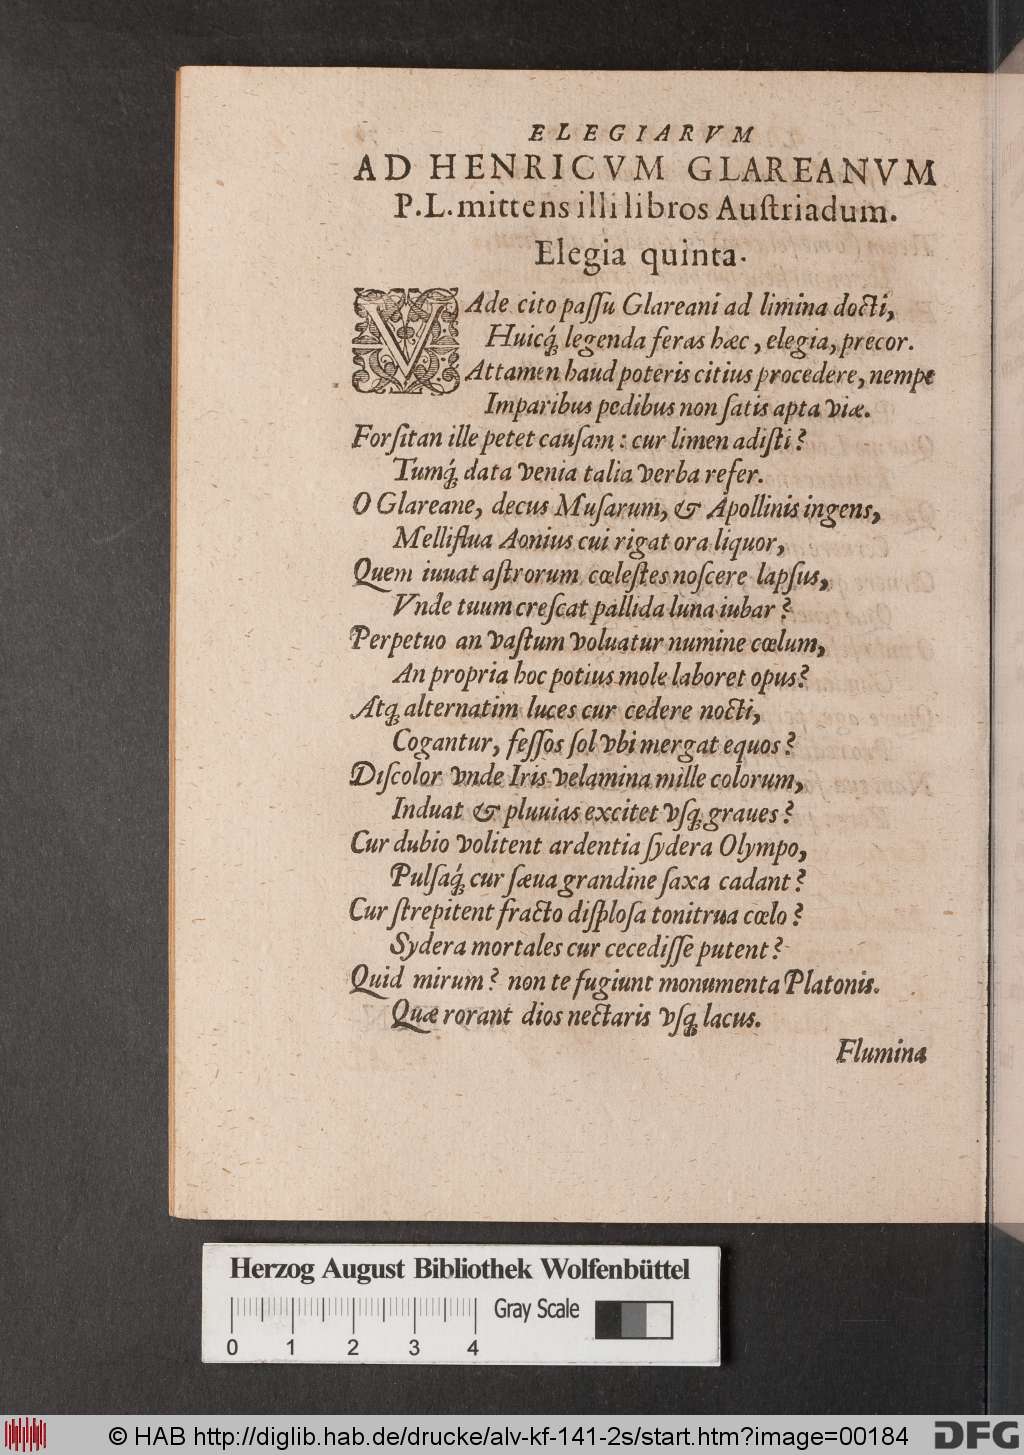 ELEGIARVM
AD HENRICVM GLAREANVM
P.L. mittens illi libros Auſtriadum.
Elegia quinta.
VAde cito paſſu Glareani ad limina docti,
Huicq́ꝫ legenda feras hæc, elegia, precor.
Attamen haud poteris citius procedere, nempe
Imparibus pedibus non ſatis apta viæ.
Forſitan ille petet cauſam: cur limen adiſti?
Tumq́ꝫ data venia talia verba refer.
O Glareane, decus Muſarum, & Apollinis ingens,
Melliflua Aonius cui rigat ora liquor,
Quem iuuat aſtrorum cœleſtes noſcere lapſus,
Vnde tuum creſcat pallida luna iubar?
Perpetuo an vaſtum voluatur numine cœlum,
An propria hoc potius mole laboret opus?
Atqꝫ alternatim luces cur cedere nocti,
Cogantur, feſſos ſol vbi mergat equos?
Diſcolor vnde Iris velamina mille colorum,
Induat & pluuias excitet vſqꝫ graues?
Cur dubio volitent ardentia ſydera Olympo,
Pulſaq́ꝫ cur ſæua grandine ſaxa cadant?
Cur ſtrepitent fracto diſploſa tonitrua cœlo?
Sydera mortales cur cecediſſe putent?
Quid mirum? non te fugiunt monumenta Platonis.
Quæ rorant dios nectaris vſqꝫ lacus.
Flumina
Herzog August Bibliothek Wolfenbüttel
Gray Scale
0 1 2 3 4
© HAB http://diglib.hab.de/drucke/alv-kf-141-2s/start.htm?image=00184
DFG